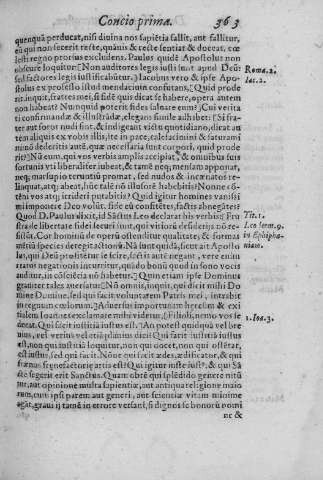 Concio prima. 363
quenquā perducat, nisi divina nos sapiētia fallit, aut fallitur,
eū qui non fecerit recte, quāuis & recte sentiat & doceat, cœ
lesti regno prorius excludens. Paulus quidē Apostolus non
obscure loquitur: Non auditores legis iusti sunt apud Deū:
sed factores legis iustificabūtur. Iacobus vero & ipse Apo-
stolus ex professo istud mendacium confutans, Quid prode
rit, inquit, fratres mei, si fidē quis dicat se habere, opera autem
non habeat? Nunquid poterit fides salvare eum? Cui verita
ti confirmandæ & illustrādæ, elegans simile adhibet: Si fra-
ter aut soror nudi sint, & indigeant victu quotidiano, dicat au
tem aliquis ex vobis illis, ite in pace, calefacimini & saturami
ni nō dederitis autē, quæ necessaria sunt corpori, quid prode
rit? Nā eum, qui vos verbis amplis accipiat, & omnibus suis
fortunis vti liberaliter iubeat, & tamē neq; mensam apponat,
neq; marsupio teruntiū promat, sed nudos & incœnatos re-
linquat, atq; abeat, hūc talē nō illusorē habebitis? Nonne cō-
tēni vos atq; irrideri putabitis? Quid igitur homines vanissi
mi imponere Deo volūt, fide eū confitētes, factis abnegātes?
Quod D. Paulus dixit, id Sāctus Leo declarat his verbis: Fru
stra de libertate fidei securi sunt, qui vitiorū desiderijs nō re-
sistūt. Cor hominū de operū ostenditur qualitate, & formas
mētiū species detegit actionū. Nā sunt quidā, sicut ait Aposto
lus, qui Deū profitētur se scire, factis autē negant, vere enim
reatus negationis incurritur, quādo bonū quod in sono vocis
auditur, in cōsciētia nō habetur. Quin etiam ipse Dominus
graviter tales aversatur: Nō omnis, inquit, qui dicit mihi Do
mine Domine, sed qui facit voluntatem Patris mei, intrabit
in regnum cœlorum. Adversus importunum
tialem Ioannes exclamare mihi videtur, Filioli, nemo vos se
ducat. Qui facit iustitiā iustus est. An potest quidquā vel bre
vius, vel verius vel etiā planius dici? Qui facit iustitiā iustus
est, non qui iustitiā loquitur, non qui docet, non qui ostētat,
est iustus, sed qui facit. Nōne qui facit ædes, ædificator, & qui
Qui igitur iuste iustus, & qui Sā
cte se gerit erit Sanctus. Quam obrē qui splēdido genere nitū
tur, aut opinione multa sapientiæ, aut antiqua religione maio
rum, cum ipsā patrem aut generi, aut scientiæ vitam minime
agāt, gravi ij tamē in errore versant, si dignos se honorū nomi
ne &
Roma. 2.
Iac. 2.
Tit. 1.
Leo serm. 9.
in Epipha-
niam.
1. Ioa. 3.